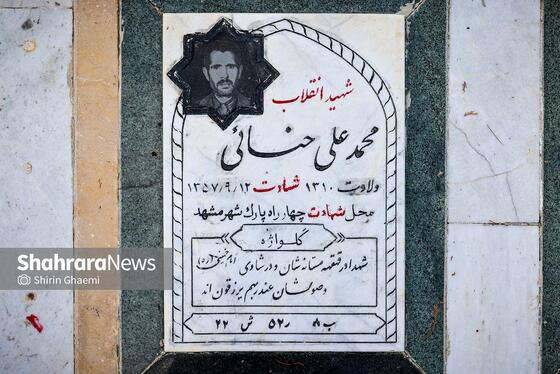 شهید انقلاب
محمد علی حنائی
ولادت ۱۳۱۰ شهادت ۱۳۵۷/۹/۱۲
محل شهادت چهارراه پارک شهر مشهد
گلواژه
شهدا در قهقهه مستانه‌شان و در شادی
امام خمینی (ره)
وصولشان عند ربهم یرزقون‌اند
ب ۸ ر ۵۲ ش ۲۲
ShahraraNews
Shirin Ghaemi